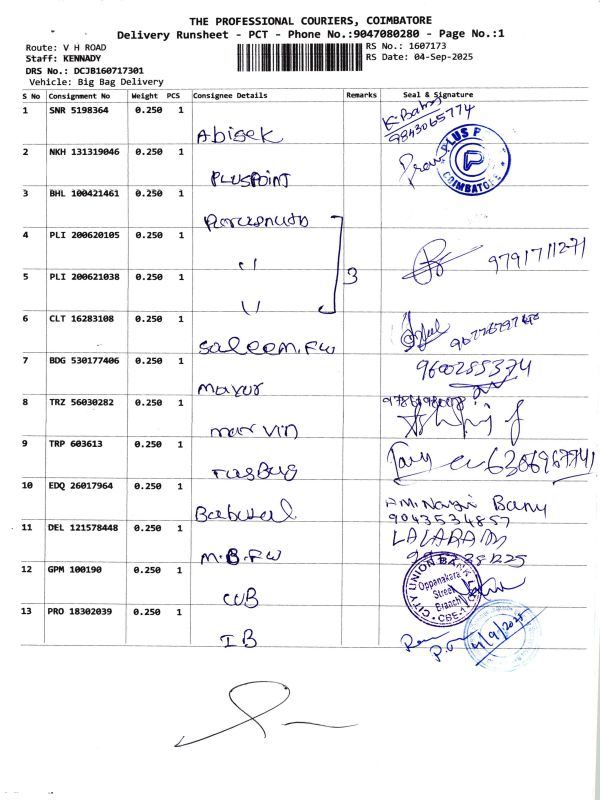 THE PROFESSIONAL COURIERS, COIMBATORE
Delivery Runsheet - PCT - Phone No.:9047080280 - Page No.:1
Route: V H ROAD
RS No.: 1607173
Staff: KENNADY
RS Date: 04-Sep-2025
DRS No.: DCJB160717301
Vehicle: Big Bag Delivery
S No Consignment No Weight PCS Consignee Details Remarks Seal & Signature
1 SNR 5198364 0.250 1 Abisek
9843065774
2 NKH 131319046 0.250 1 PLUSPOINT
PLUS P
COIMBATORE
3 BHL 100421461 0.250 1
4 PLI 200620105 0.250 1 " 3
5 PLI 200621038 0.250 1 "
6 CLT 16283108 0.250 1 Saleem.FW
7 BDG 530177406 0.250 1 Mayur 9600285374
8 TRZ 56030282 0.250 1 marvin
9 TRP 603613 0.250 1
10 EDQ 26017964 0.250 1 Babulal
Banu
9043534857
11 DEL 121578448 0.250 1 M.B.FW
12 GPM 100190 0.250 1 CUB
CITY UNION BANK
Oppanakara
Street
Branch
CBE-1
13 PRO 18302039 0.250 1 IB
4/9/2025